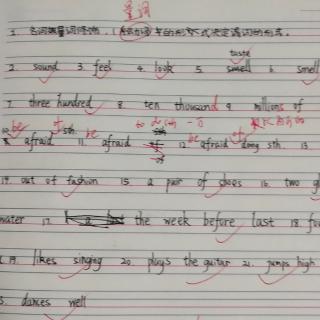 量词
1. 名词被量词修饰, (量词) 的形式决定谓词的形式.
taste
2. sound 3. feel 4. look 5. smell 6. smell
7. three hundred 8. ten thousand 9. millions of
be of sth. be to do sth be of
afraid 11. afraid 12 afraid doing sth. 13.
14. out of fashion 15. a pair of shoes 16. two
water 17. the week before last 18
19. likes singing 20. plays the guitar 21. jumps high
dances well